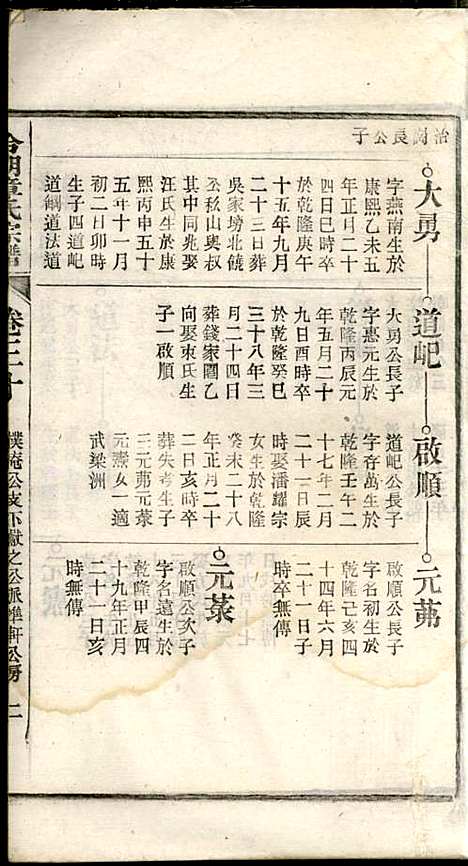 治國長公子
大勇
字燕南生於
康熙乙未五
年正月二十
四日巳時卒
於乾隆庚午
十五年九月
二十三日葬
吳家塝北饒
公移山與叔
其中同兆娶
汪氏生於康
熙丙申五十
五年十一月
初二日卯時
生子四道屺
道嗣道法道
道屺
大勇公長子
字惠元生於
乾隆丙辰元
年五月二十
九日酉時卒
於乾隆癸巳
三十八年三
月二十四日
葬錢家園乙
向娶朿氏生
子一啟順
啟順
道屺公長子
字春萬生於
乾隆壬午二
十七年二月
二十一日辰
時娶潘耀宗
女生於乾隆
癸未二十八
年正月二十
二日亥時卒
葬失考生子
三元茀元菉
元燾女一適
武梁洲
元茀
啟順公長子
字名初生於
乾隆己亥四
十四年六月
二十一日子
時卒無傳
元菉
啟順公次子
字名遠生於
乾隆甲辰四
十九年正月
二十一日亥
時無傳
章氏宗譜
卷三十
樸庵公支下獻之公派準軒公房
二